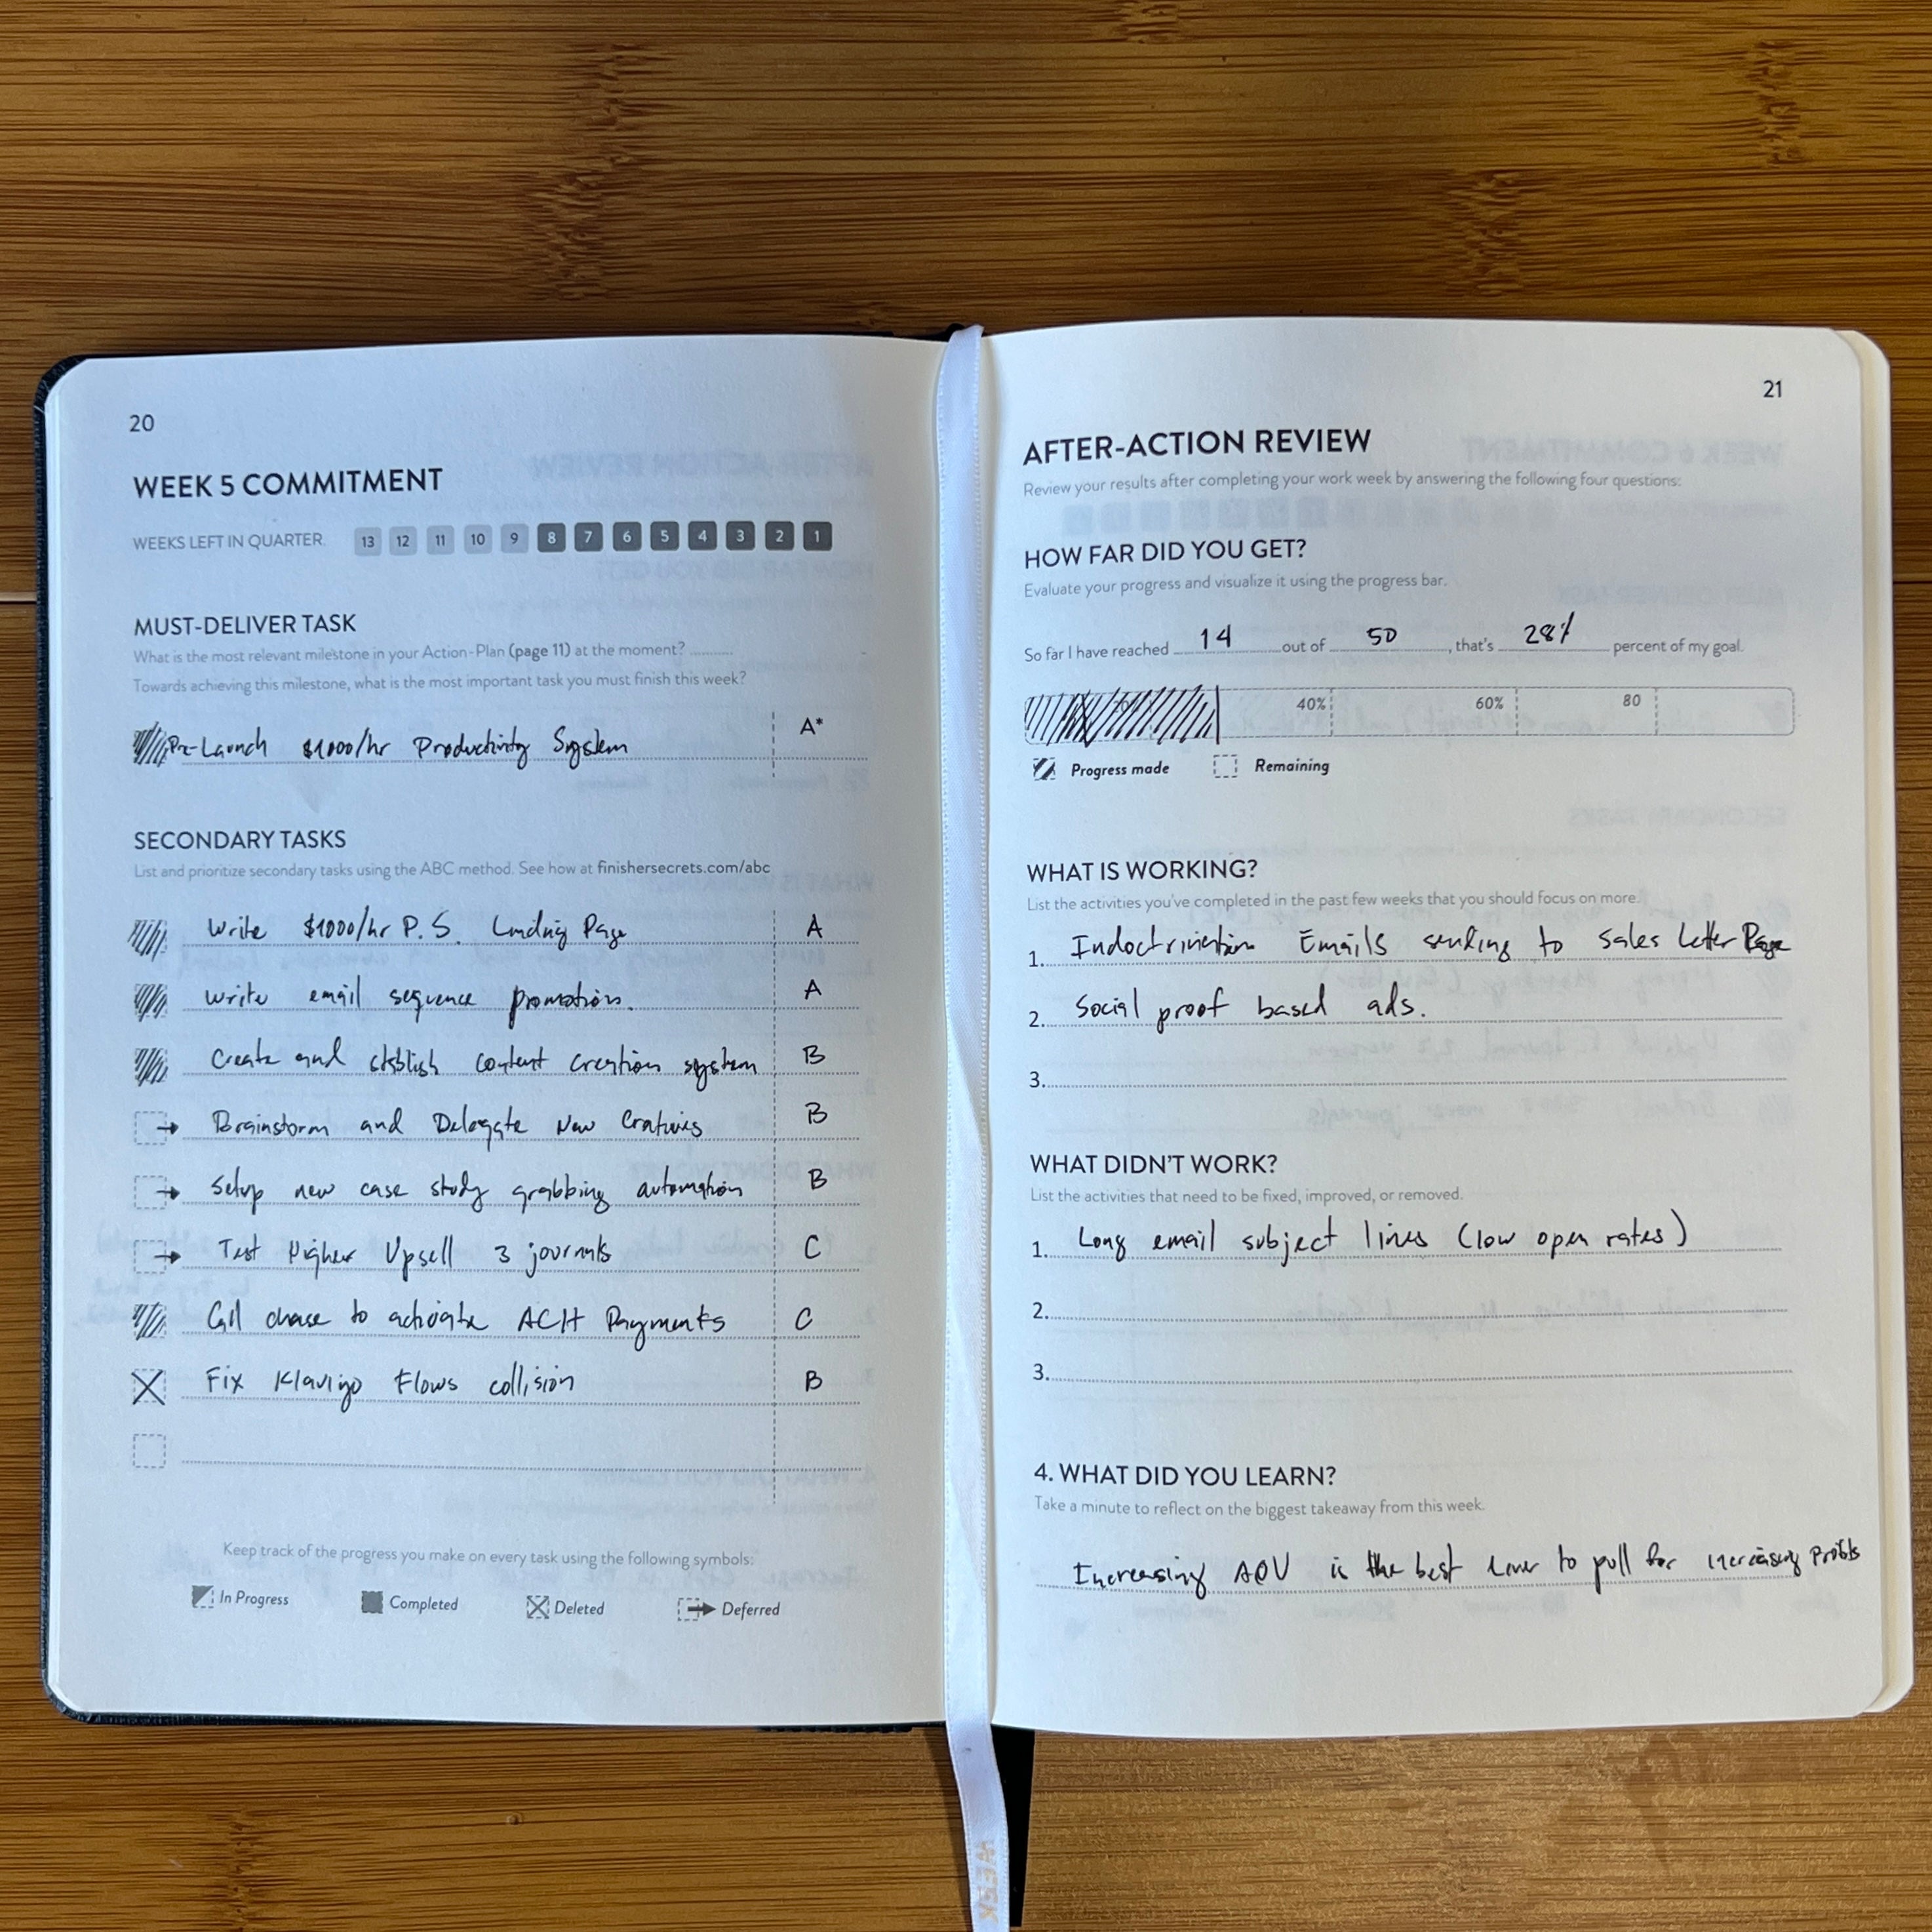 20
WEEK 5 COMMITMENT
WEEKS LEFT IN QUARTER 13 12 11 10 9 8 7 6 5 4 3 2 1
MUST-DELIVER TASK
What is the most relevant milestone in your Action-Plan (page 11) at the moment? ..........
Towards achieving this milestone, what is the most important task you must finish this week?
Pre-Launch $1000/hr Productivity System A*
SECONDARY TASKS
List and prioritize secondary tasks using the ABC method. See how at finishersecrets.com/abc
Write $1000/hr P.S. Landing Page A
write email sequence promotion. A
Create and establish content creation system B
Brainstorm and Delegate New Creatives B
Setup new case study grabbing automation B
Test Higher Upsell 3 journals C
Call chase to activate ACH Payments C
Fix Klaviyo Flows collision B
Keep track of the progress you make on every task using the following symbols:
In Progress Completed Deleted Deferred
21
AFTER-ACTION REVIEW
Review your results after completing your work week by answering the following four questions:
HOW FAR DID YOU GET?
Evaluate your progress and visualize it using the progress bar.
So far I have reached 14 out of 50, that's 28% percent of my goal.
20% 40% 60% 80
Progress made Remaining
WHAT IS WORKING?
List the activities you've completed in the past few weeks that you should focus on more.
1. Indoctrination Emails sending to Sales Letter Page
2. Social proof based ads.
3.
WHAT DIDN'T WORK?
List the activities that need to be fixed, improved, or removed.
1. Long email subject lines (low open rates)
2.
3.
4. WHAT DID YOU LEARN?
Take a minute to reflect on the biggest takeaway from this week.
Increasing AOV is the best lever to pull for increasing profits
WEEK